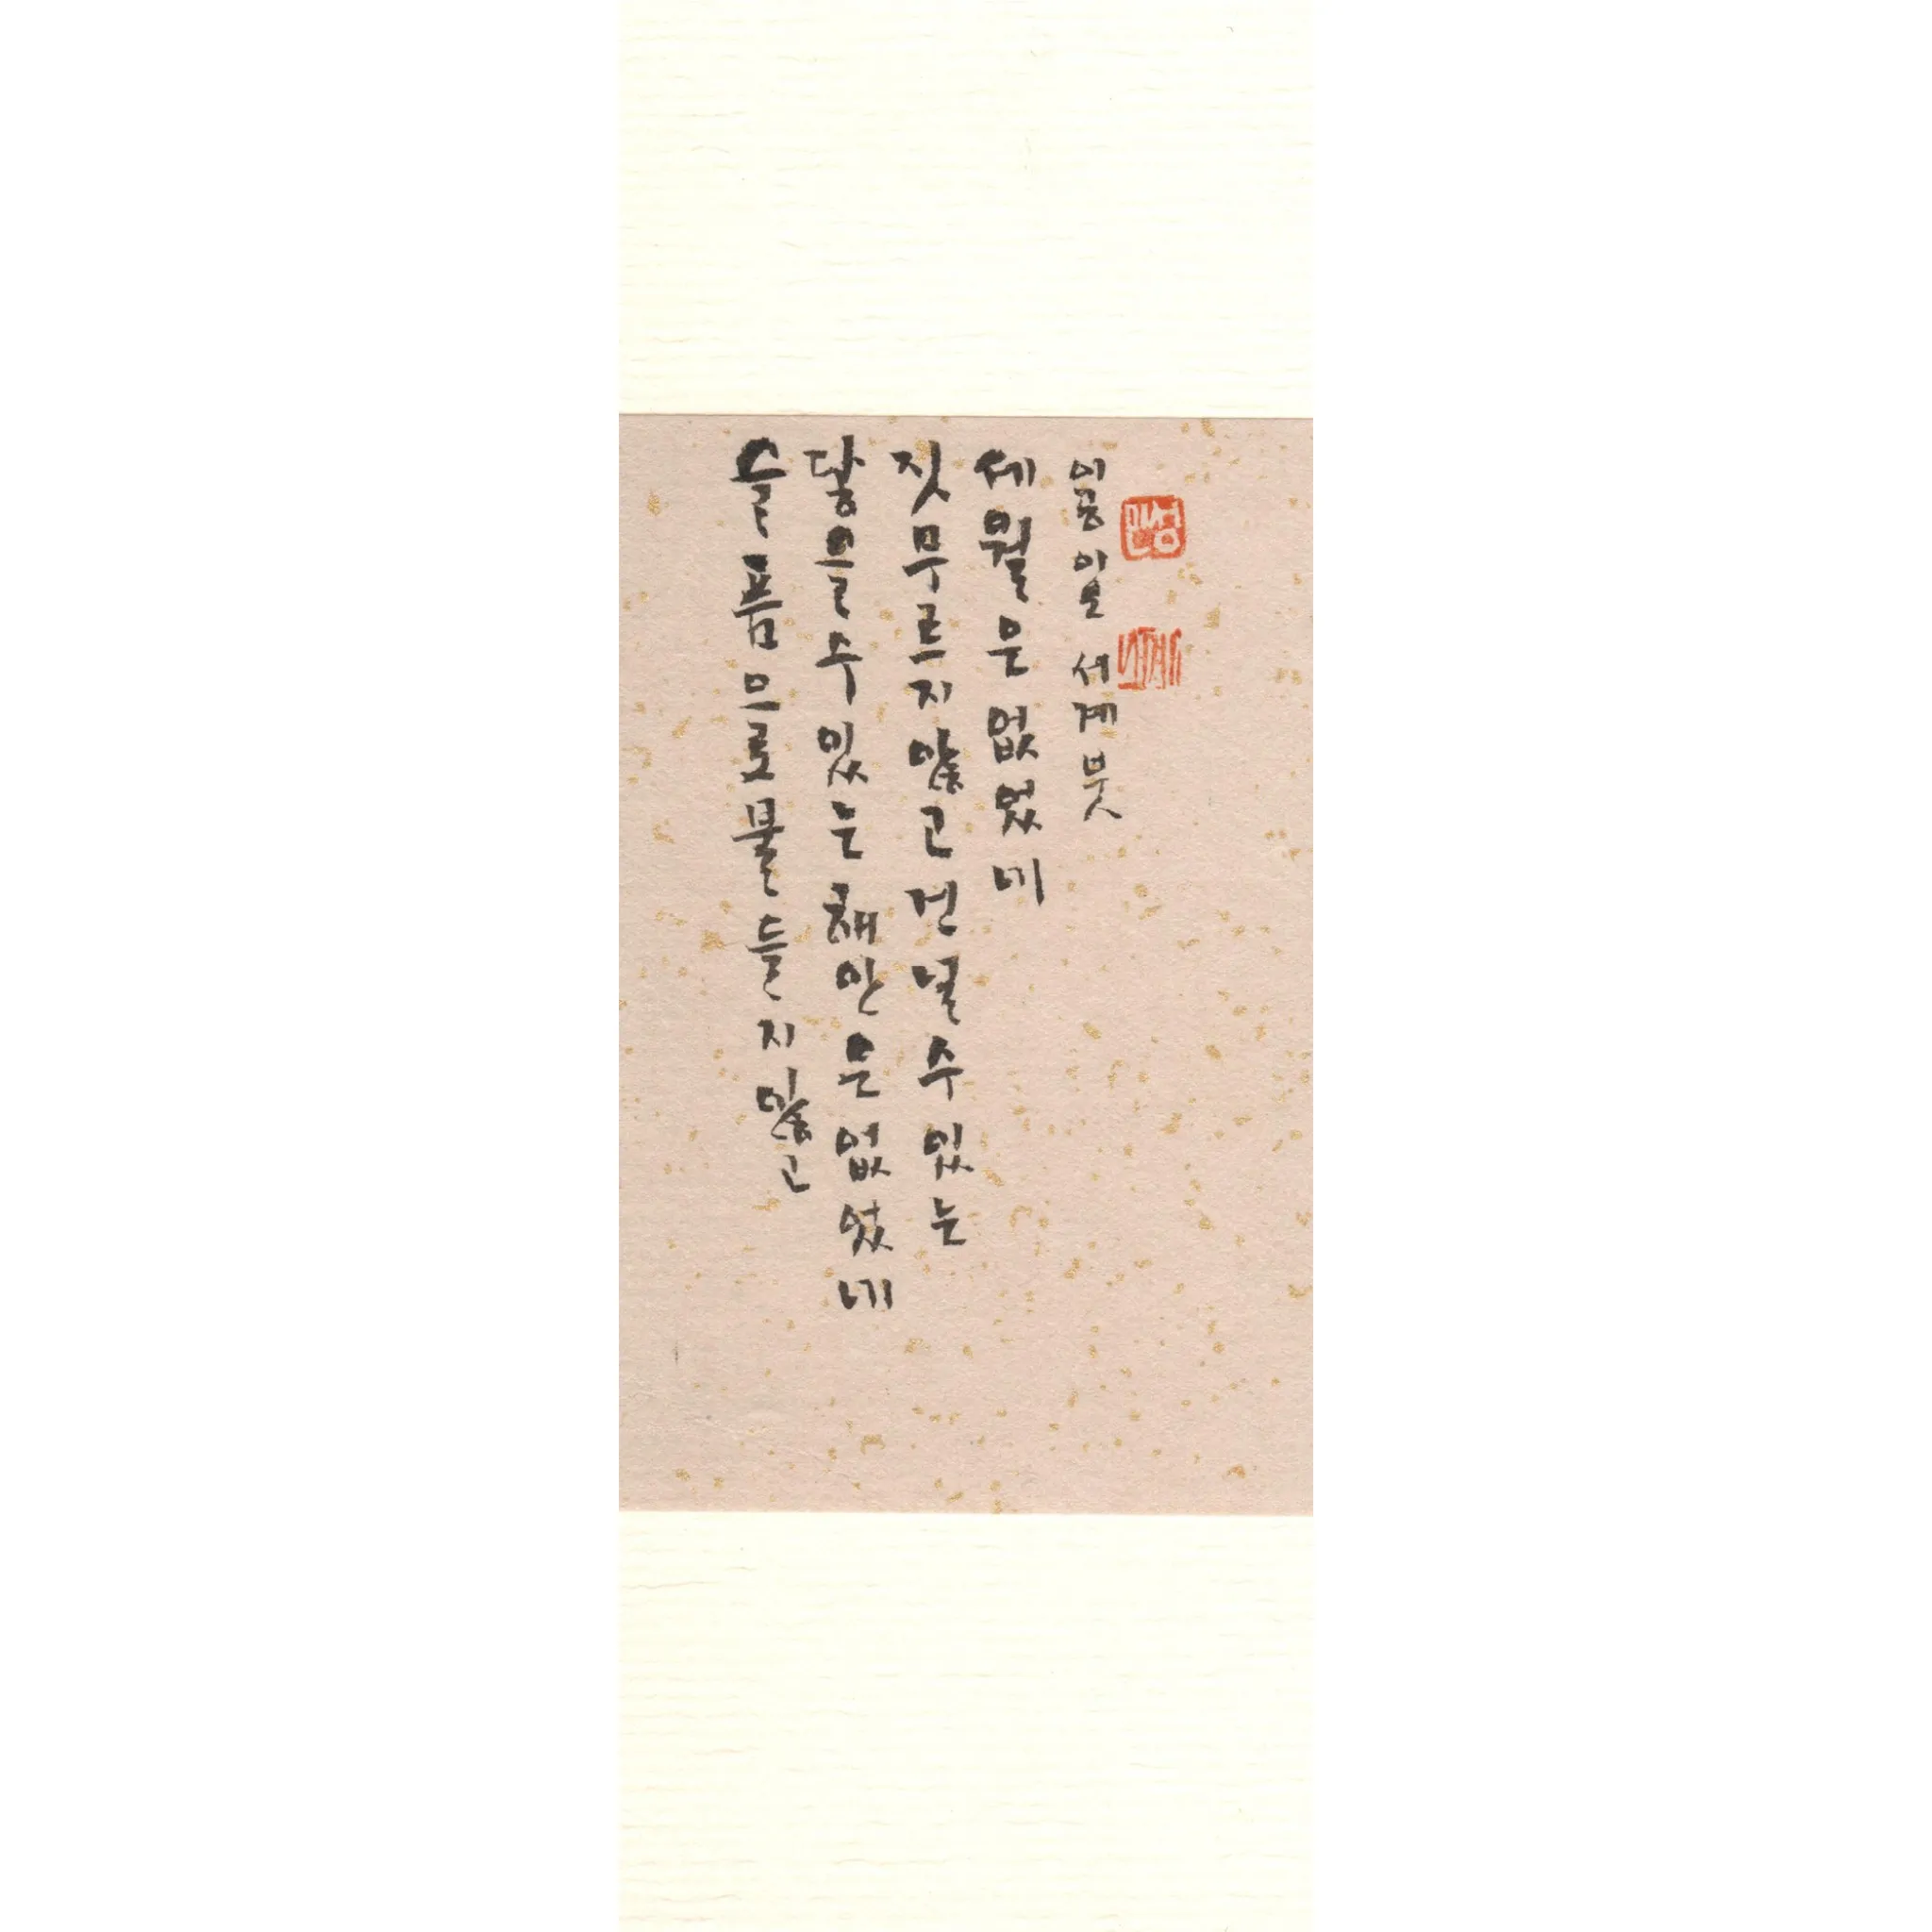 슬픔으로물들지않고
닿을수있는해안은없었네
짓무르지않고건널수있는
세월은없었네
이공일오 세계붓